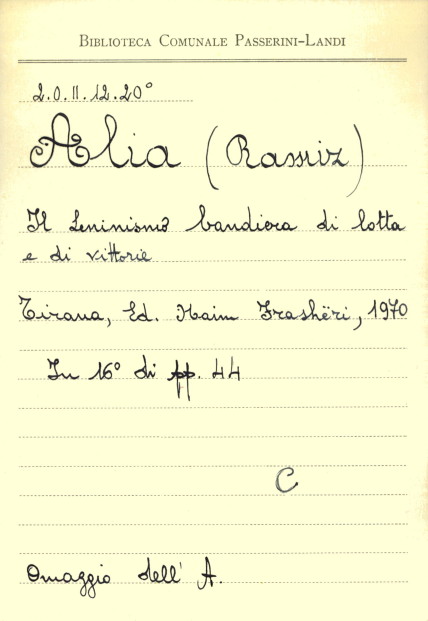 BIBLIOTECA COMUNALE PASSERINI-LANDI
2.0.II.12.20°
Alia (Ramiz)
Il Leninismo bandiera di lotta
e di vittorie
Tirana, Ed. Naim Frashëri, 1970
In 16° di pp. 44
C
Omaggio dell' A.